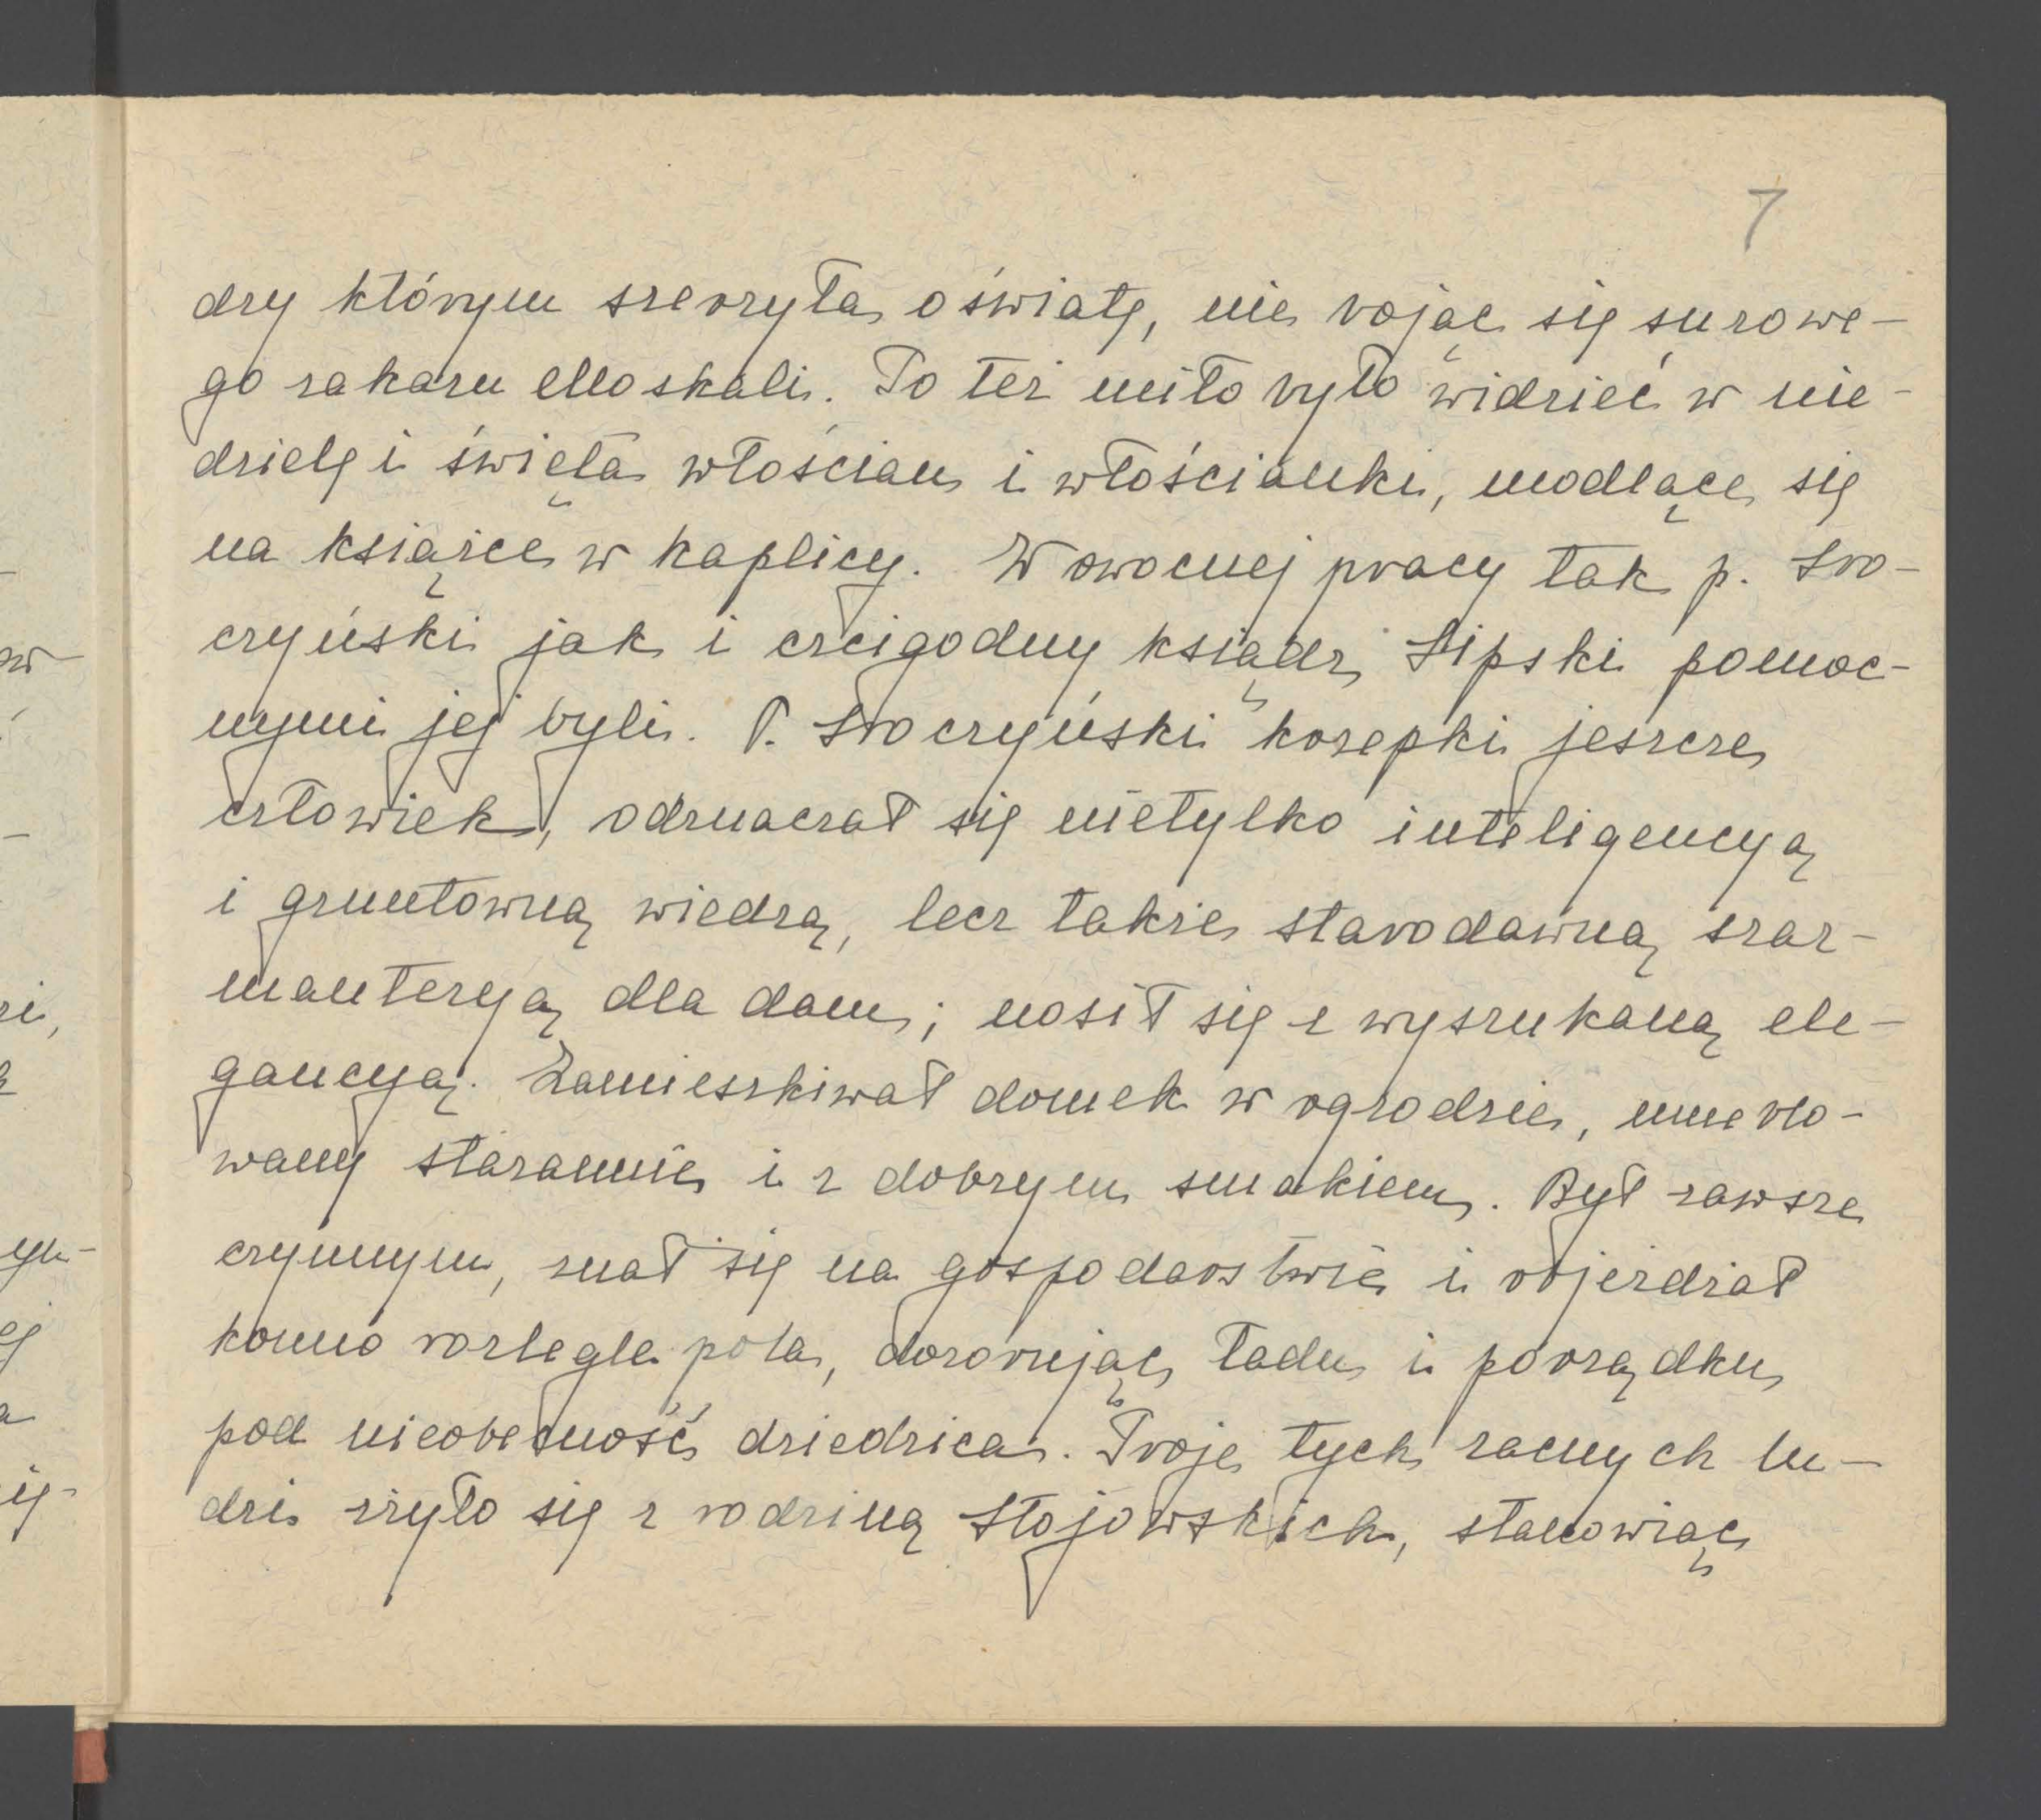 7
dzy którym szerzyła oświatę, nie bojąc się surowe-
go zakazu Moskali. To też miło było widzieć w nie-
dzielę i święta włościan i włościanki, modlące się
na książce w kaplicy. W owocnej pracy tak p. Sro-
czyński jak i czcigodny ksiądz Lipski pomoc-
nymi jej byli. P. Sroczyński krzepki jeszcze
człowiek, odznaczał się nietylko inteligencyą
i gruntowną wiedzą, lecz także starodawną szar-
manteryą dla dam; nosił się z wyszukaną ele-
gancyą. Zamieszkiwał domek w ogrodzie, umeblo-
wany starannie i z dobrym smakiem. Był zawsze
czynnym, znał się na gospodarstwie i objeżdżał
konno rozległe pola, dozorując ładu i porządku
pod nieobecność dziedzica. Troje tych zacnych lu-
dzi zżyło się z rodziną Stojowskich, stanowiąc